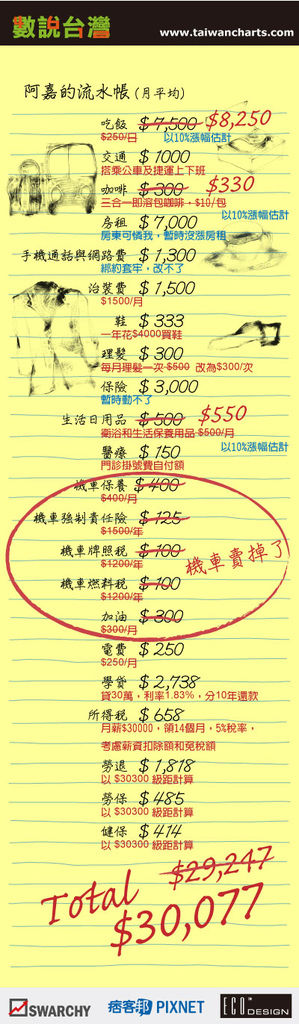 數說台灣
www.taiwancharts.com
阿嘉的流水帳 (月平均)
吃飯 $7,500 $8,250
$250/日 以10%漲幅估計
交通 $1000
搭乘公車及捷運上下班
咖啡 $300 $330
三合一即溶包咖啡，$10/包
以10%漲幅估計
房租 $7,000
房東可憐我，暫時沒漲房租
手機通話與網路費 $1,300
綁約套牢，改不了
治裝費 $1,500
$1500/月
鞋 $333
一年花$4000買鞋
理髮 $300
每月理髮一次 $500 改為$300/次
保險 $3,000
暫時動不了
生活日用品 $500 $550
衛浴和生活保養用品 $500/月
以10%漲幅估計
醫療 $150
門診掛號費自付額
機車保養 $400
$400/月
機車強制責任險 $125
$1500/年
機車牌照稅 $100
$1200/年
機車賣掉了
機車燃料稅 $100
$1200/年
加油 $300
$300/月
電費 $250
$250/月
學貸 $2,738
貸30萬，利率1.83%，分10年還款
所得稅 $658
月薪$30000，領14個月，5%稅率，
考慮薪資扣除額和免稅額
勞退 $1,818
以 $30300 級距計算
勞保 $485
以 $30300 級距計算
健保 $414
以 $30300 級距計算
Total $29,247
$30,077
SWARCHY 痞客邦 PIXNET ECO DESIGN